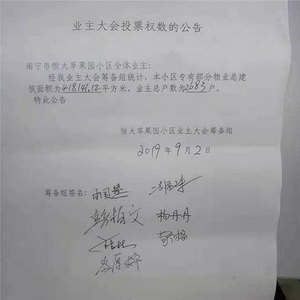 业主大会投票权数的公告
南宁市恒大苹果园小区全体业主:
经我业主大会筹备组统计,本小区专有部分物业总建
筑面积为418141.12平方米,业主总户数为2683户。
特此公告
恒大苹果园小区业主大会筹备组
2019年9月2日
筹备组签名:
杨丹丹